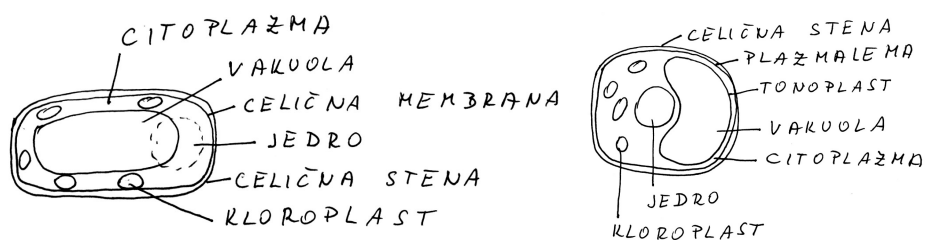 CITOPLAZMA
VAKUOLA
CELIČNA MEMBRANA
JEDRO
CELIČNA STENA
KLOROPLAST
CELIČNA STENA
PLAZMALEMA
TONOPLAST
VAKUOLA
CITOPLAZMA
JEDRO
KLOROPLAST